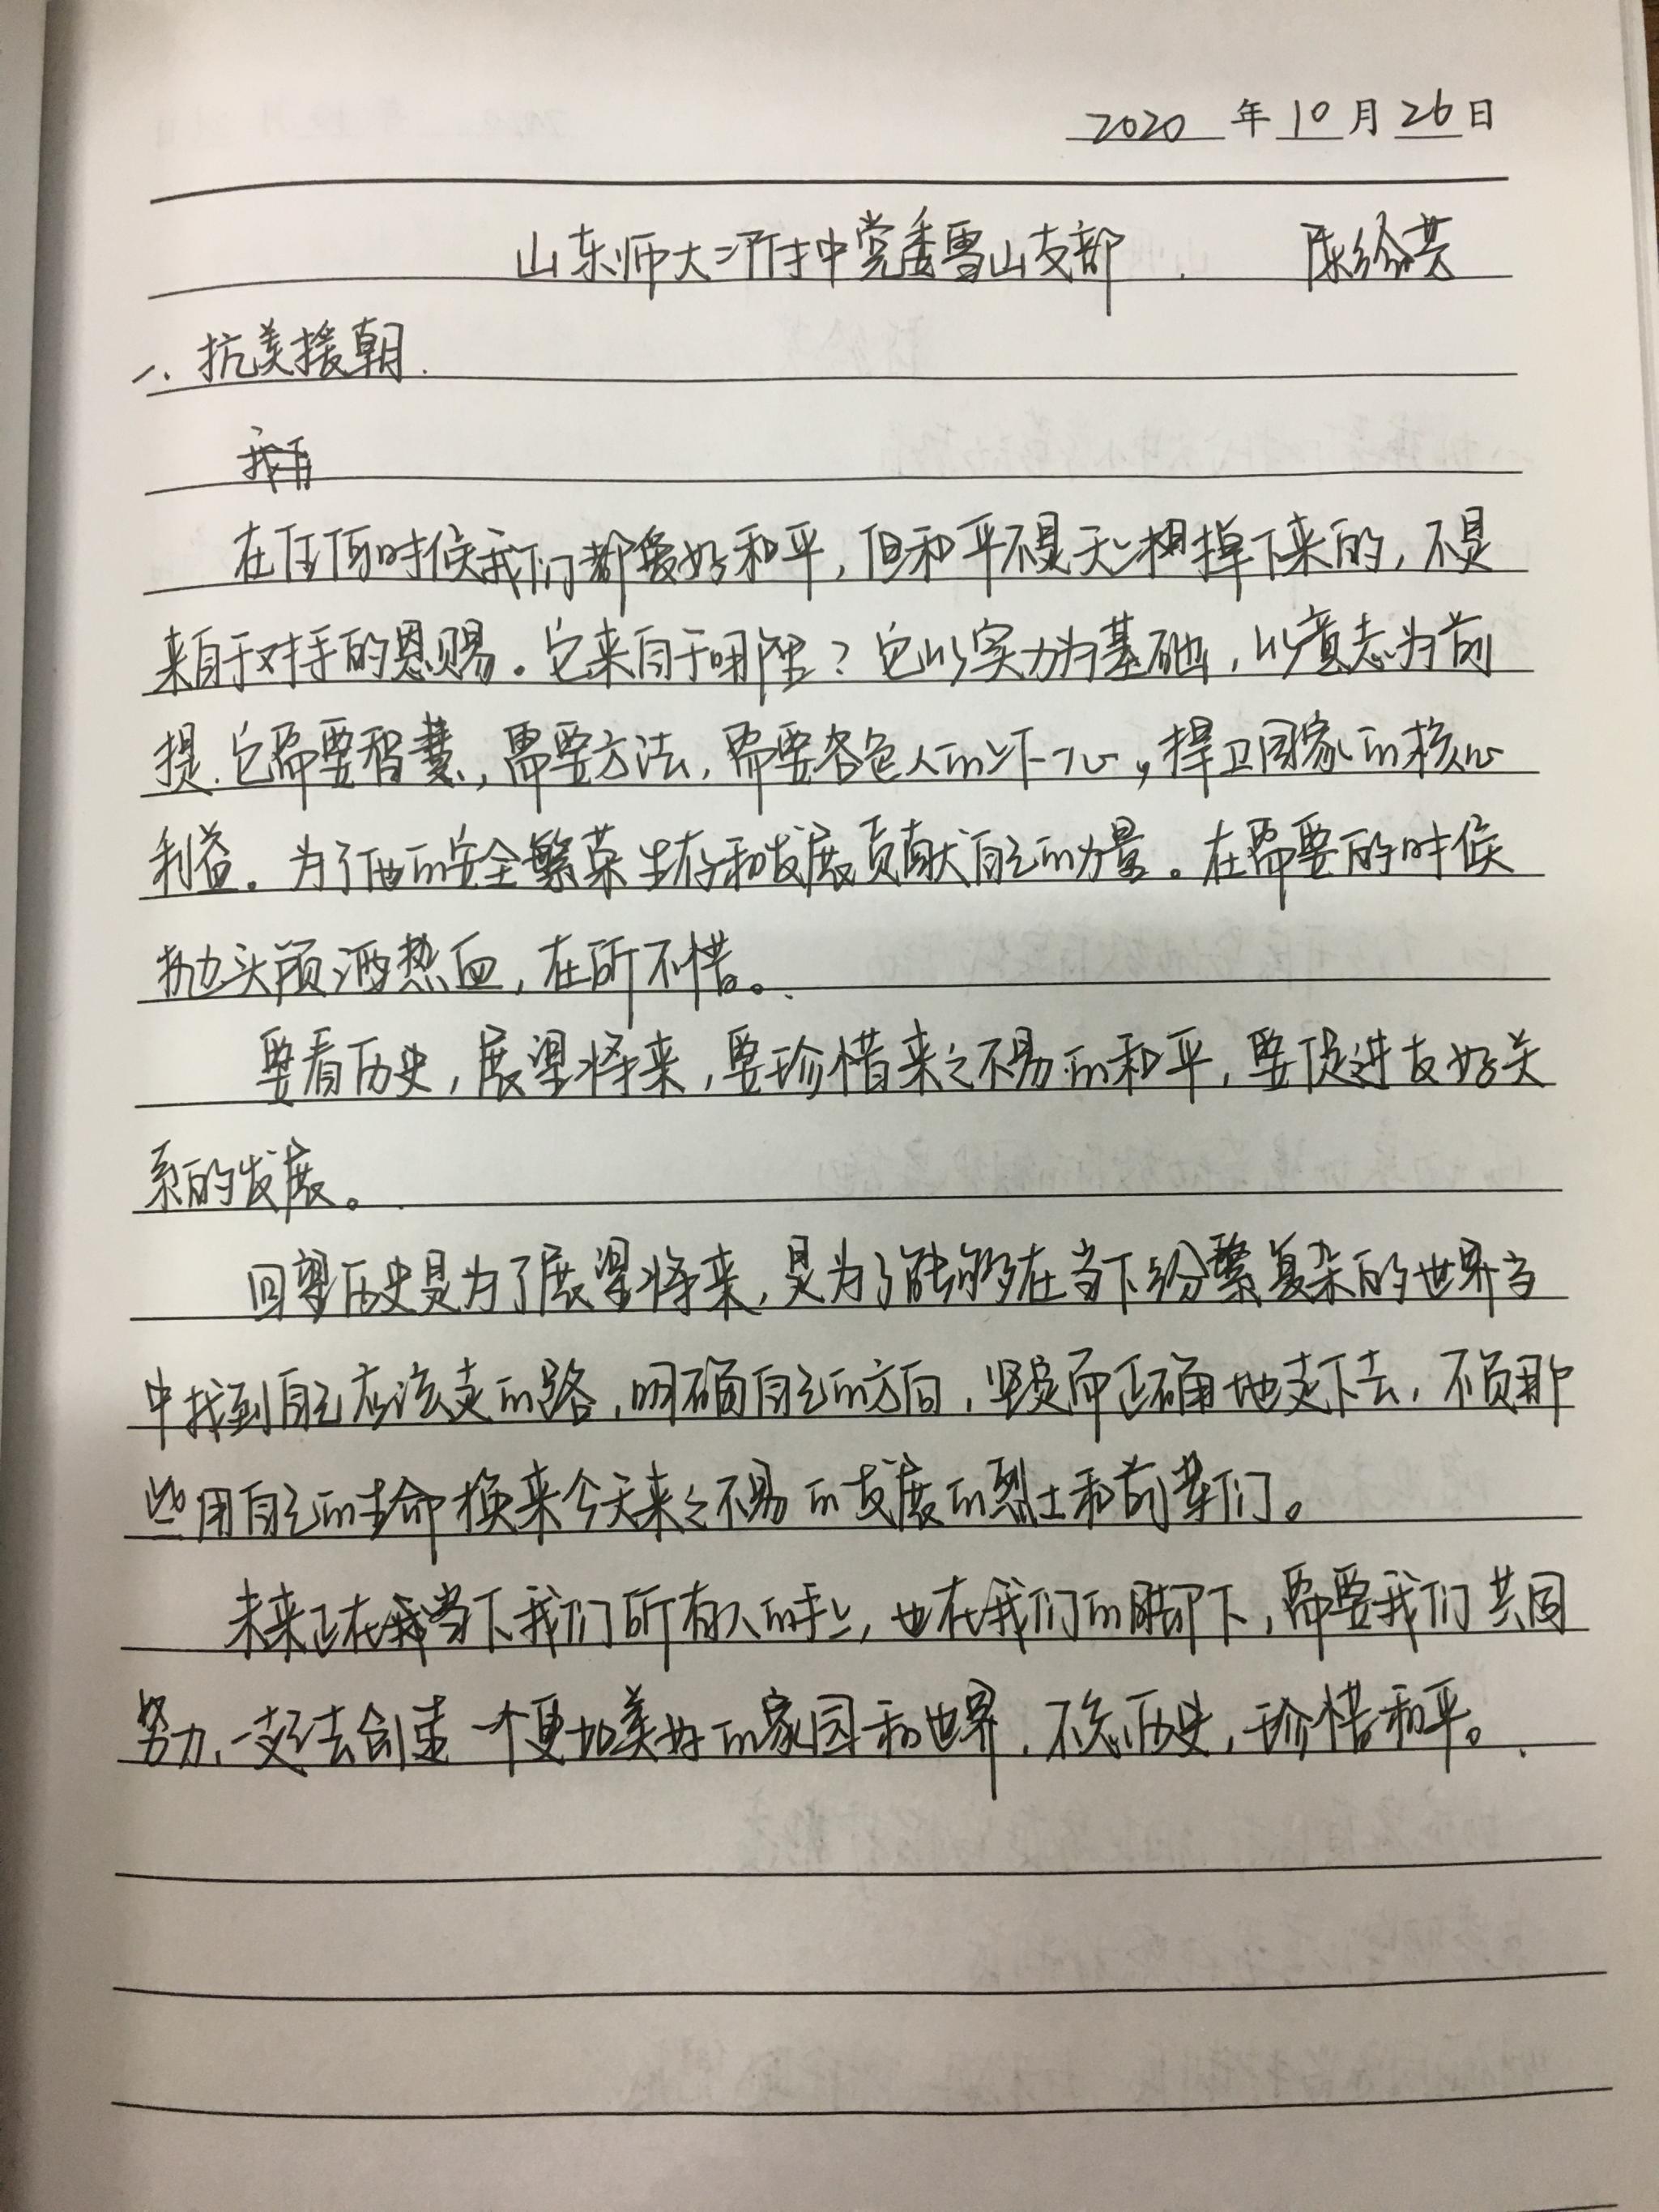 2020 年 10 月 26 日
山东师大附中党委雪山支部 陈绘芸
一. 抗美援朝.
在任何时候我们都爱好和平,但和平不是天上掉下来的,不是
来自于对手的恩赐。它来自于哪里?它以实力为基础,以意志为前
提.它需要智慧,需要方法,需要各色人的上下一心,捍卫国家的核心
利益。为了他的安全繁荣生存和发展贡献自己的力量。在需要的时候
抛头颅洒热血,在所不惜。
要看历史,展望将来,要珍惜来之不易的和平,要促进友好关
系的发展。
回望历史是为了展望将来,是为了能够在当下纷繁复杂的世界当
中找到自己应该走的路,明确自己的方向,坚定而正确地走下去,不负那
些用自己的生命换来今天来之不易的发展的烈士和前辈们。
未来正在当下我们所有人的手上,也在我们的脚下,需要我们共同
努力,一起去创造一个更加美好的家园和世界.不忘历史,珍惜和平。